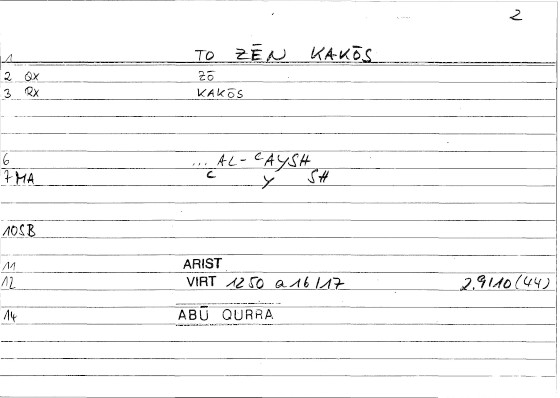 2
1 TO ZĒN KAKŌS
2 QX ZŌ
3 QX KAKŌS
6 ... AL-ʿAYSH
7 MA ʿ Y SH
10 SB
11 ARIST
12 VIRT 1250 a 16/17 2.9/10 (44)
14 ABŪ QURRA